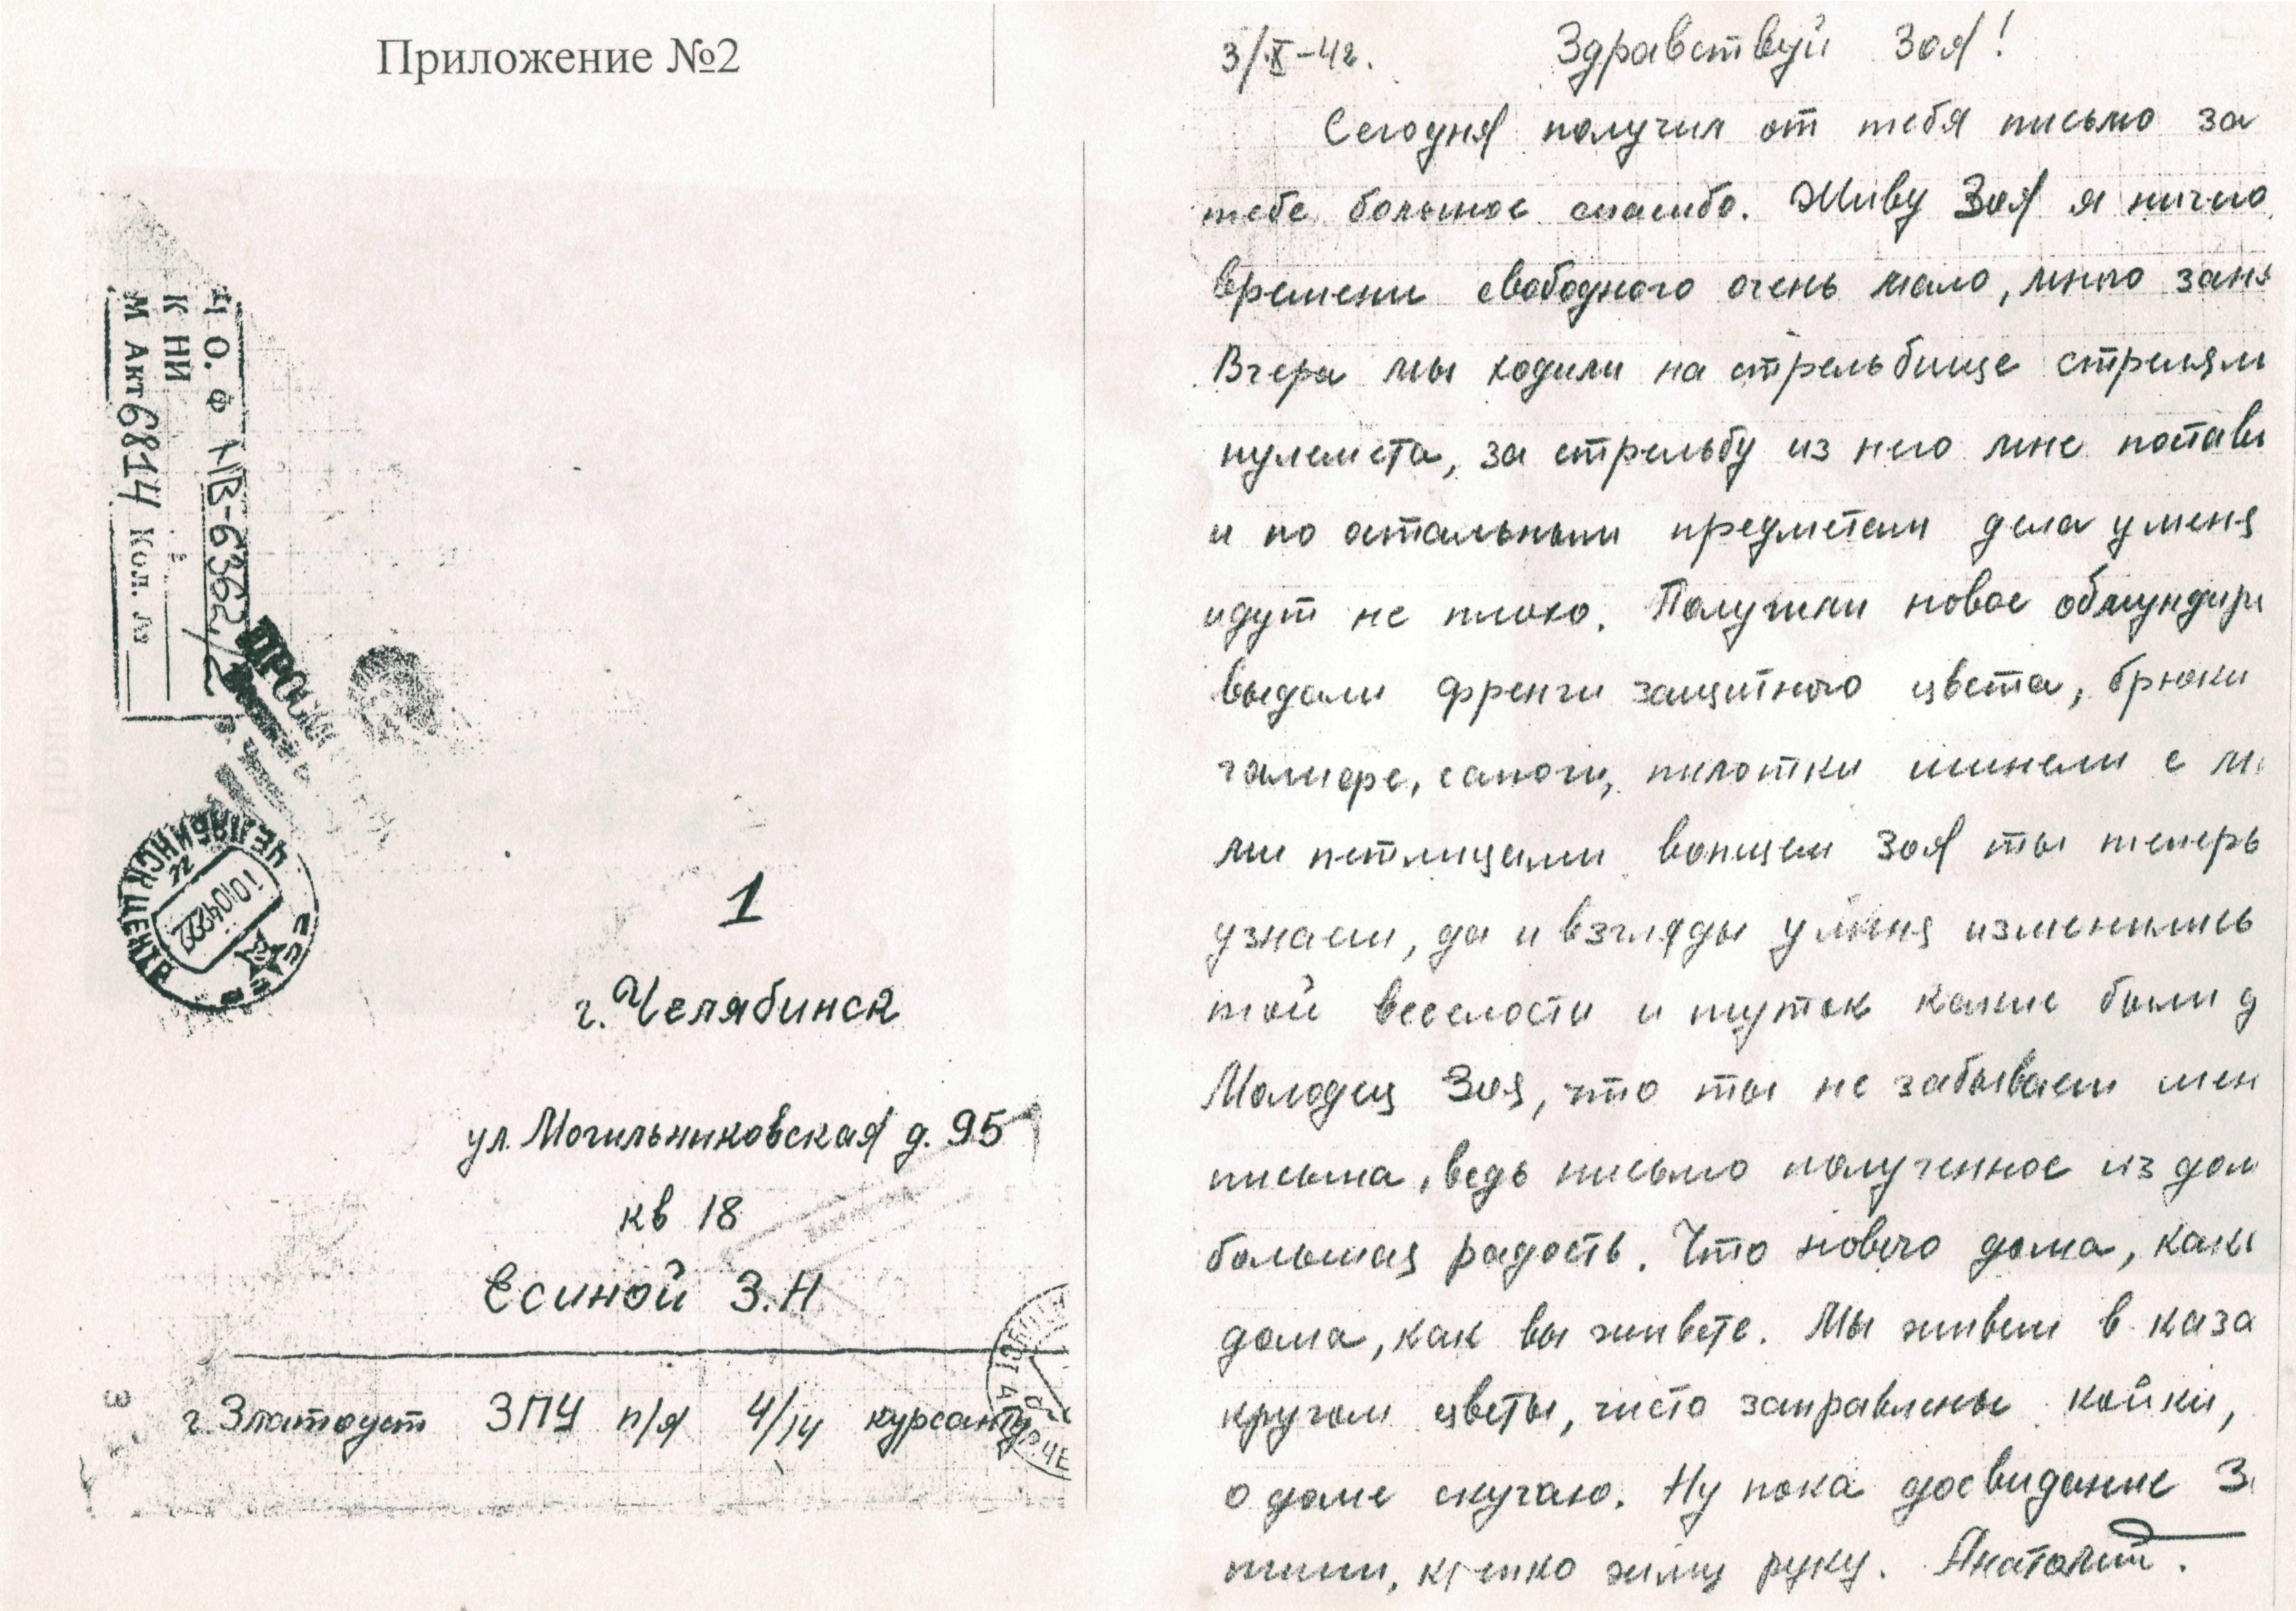 Приложение №2
Ч О. Ф НВ-6362/2
К НИ
М Акт 6814 Кол. №
ЧЕЛЯБИНСК ЦЕНТР
СССР
1
г. Челябинск
ул. Могильниковская д. 95
кв 18
Есиной З.Н
г. Златоуст ЗПУ п/я 4/IV курсанту
3/X-42. Здравствуй Зоя!
Сегодня получил от тебя письмо за
тебе большое спасибо. Живу Зоя я ничего
времени свободного очень мало, много заня
Вчера мы ходили на стрельбище стрелял
пулемета, за стрельбу из него мне постави
и по остальным предметам дела у меня
идут не плохо. Получили новое обмундир
выдали френчи защитного цвета, брюки
галифе, сапоги, пилотки шинели с
ми петлицами вопщем Зоя ты теперь
узнаеш, да и взгляды у меня изменились
той веселости и шуток какие были д
Молодец Зоя, что ты не забываеш мен
письма, ведь письмо полученное из дом
большая радость. Что нового дома, как
дома, как вы живете. Мы живем в каза
кругом цветы, чисто заправлены койки,
о доме скучаю. Ну пока досвидание З
пиши, крепко жму руку. Анатолий.